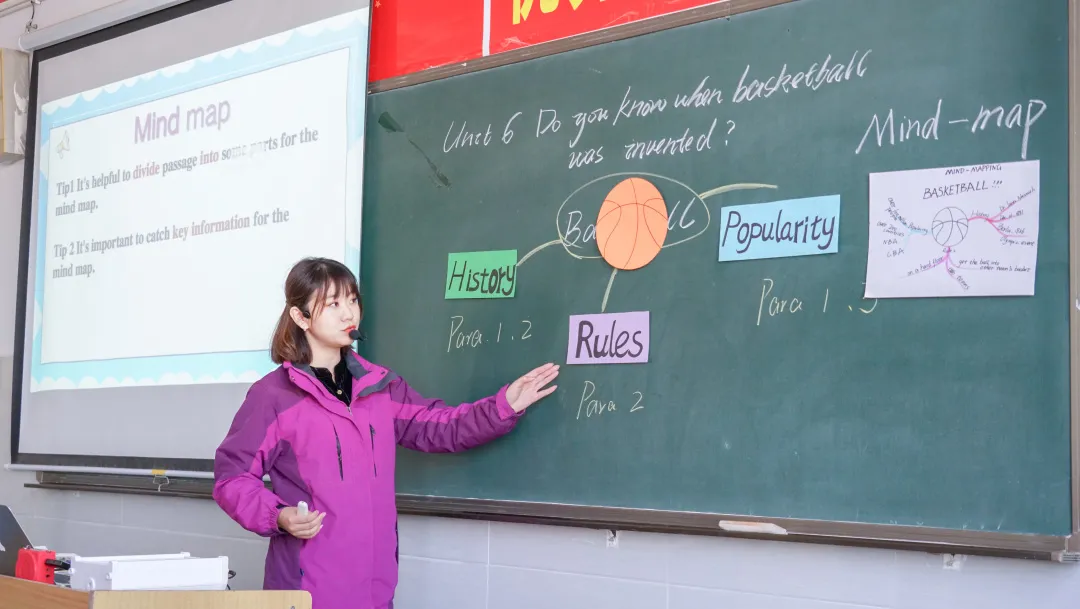 Mind map
Tip1 It's helpful to divide passage into some parts for the
mind map.
Tip 2 It's important to catch key information for the
mind map.
Unit 6 Do you know when basketball
was invented?
Mind-map
History
Para 1.2
Rules
Para 2
Popularity
Para 1.3
MIND-MAPPING
BASKETBALL!!!
History
NBA
CBA